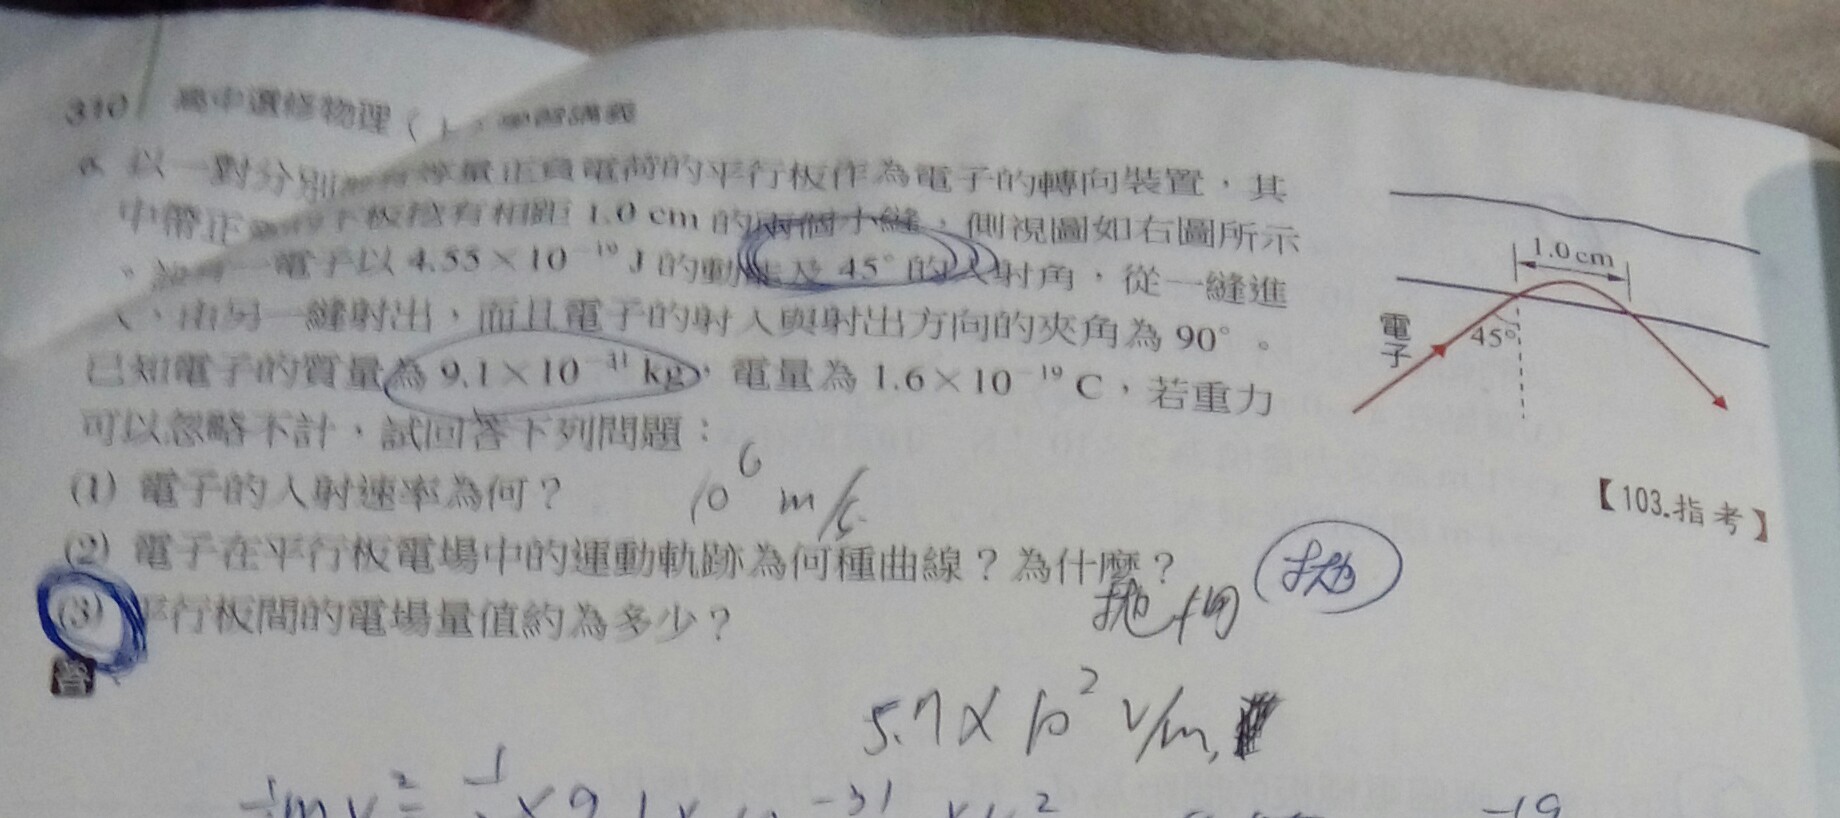 310 高中選修物理(
以一對分別 等量正負電荷的平行板作為電子的轉向裝置，其
中帶正 下板挖有相距 1.0 cm 的兩個小縫，側視圖如右圖所示
一電子以 4.55×10⁻¹⁹ J 的動能及 45° 的入射角，從一縫進
入、由另一縫射出，而且電子的射入與射出方向的夾角為 90°。
已知電子的質量為 9.1×10⁻³¹ kg，電量為 1.6×10⁻¹⁹ C，若重力
可以忽略不計，試回答下列問題：
(1) 電子的入射速率為何？ 10⁶ m/s.
(2) 電子在平行板電場中的運動軌跡為何種曲線？為什麼？
拋物 拋
(3) 平行板間的電場量值約為多少？
答
5.7×10² V/m,
1.0 cm
電子
45°
【103.指考】